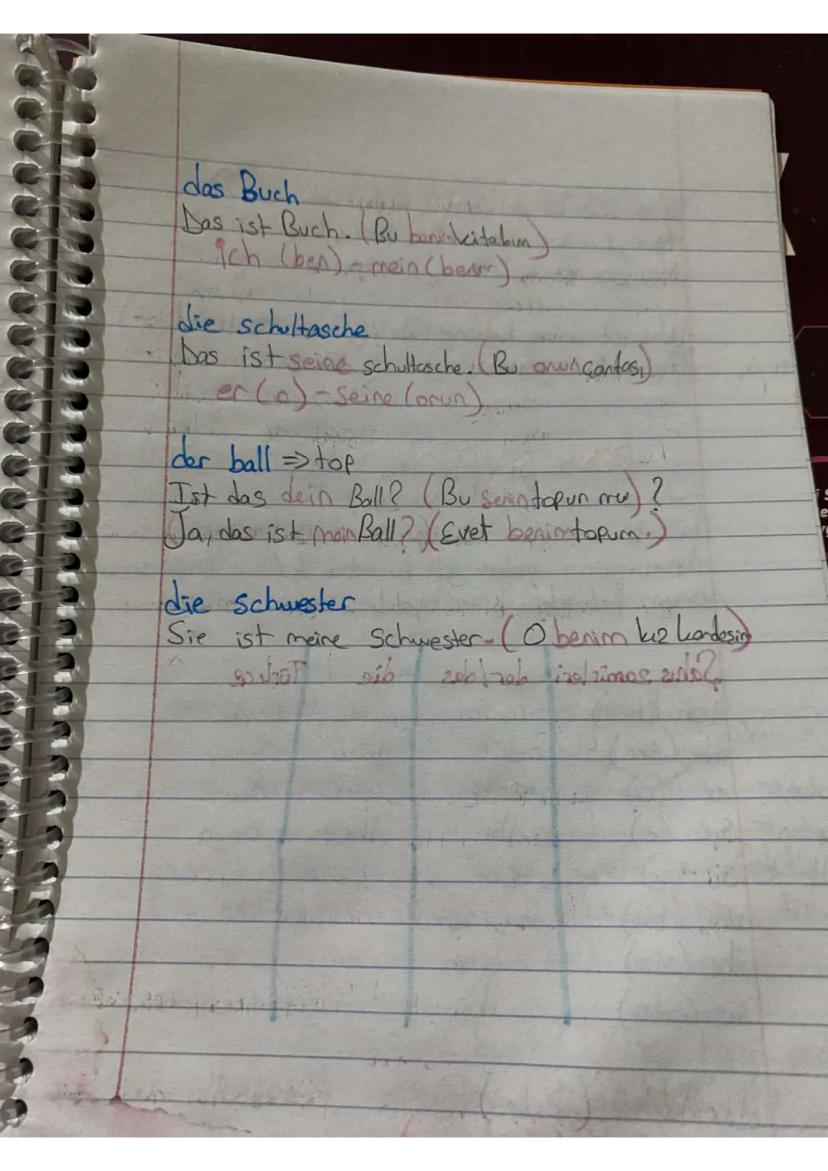 das Buch
Das ist Buch. (Bu benim kitabım)
ich (ben) - mein (benim)
die schultasche
Das ist seine schultasche. (Bu onun çantası)
er (o) - seine (onun)
der ball => top
Ist das dein Ball? (Bu senin topun mu) ?
Ja, das ist mein Ball? (Evet benim topum.)
die schwester
Sie ist meine Schwester. (O benim kız kardeşim)
Şahıs zamirleri der/das die Türkçe